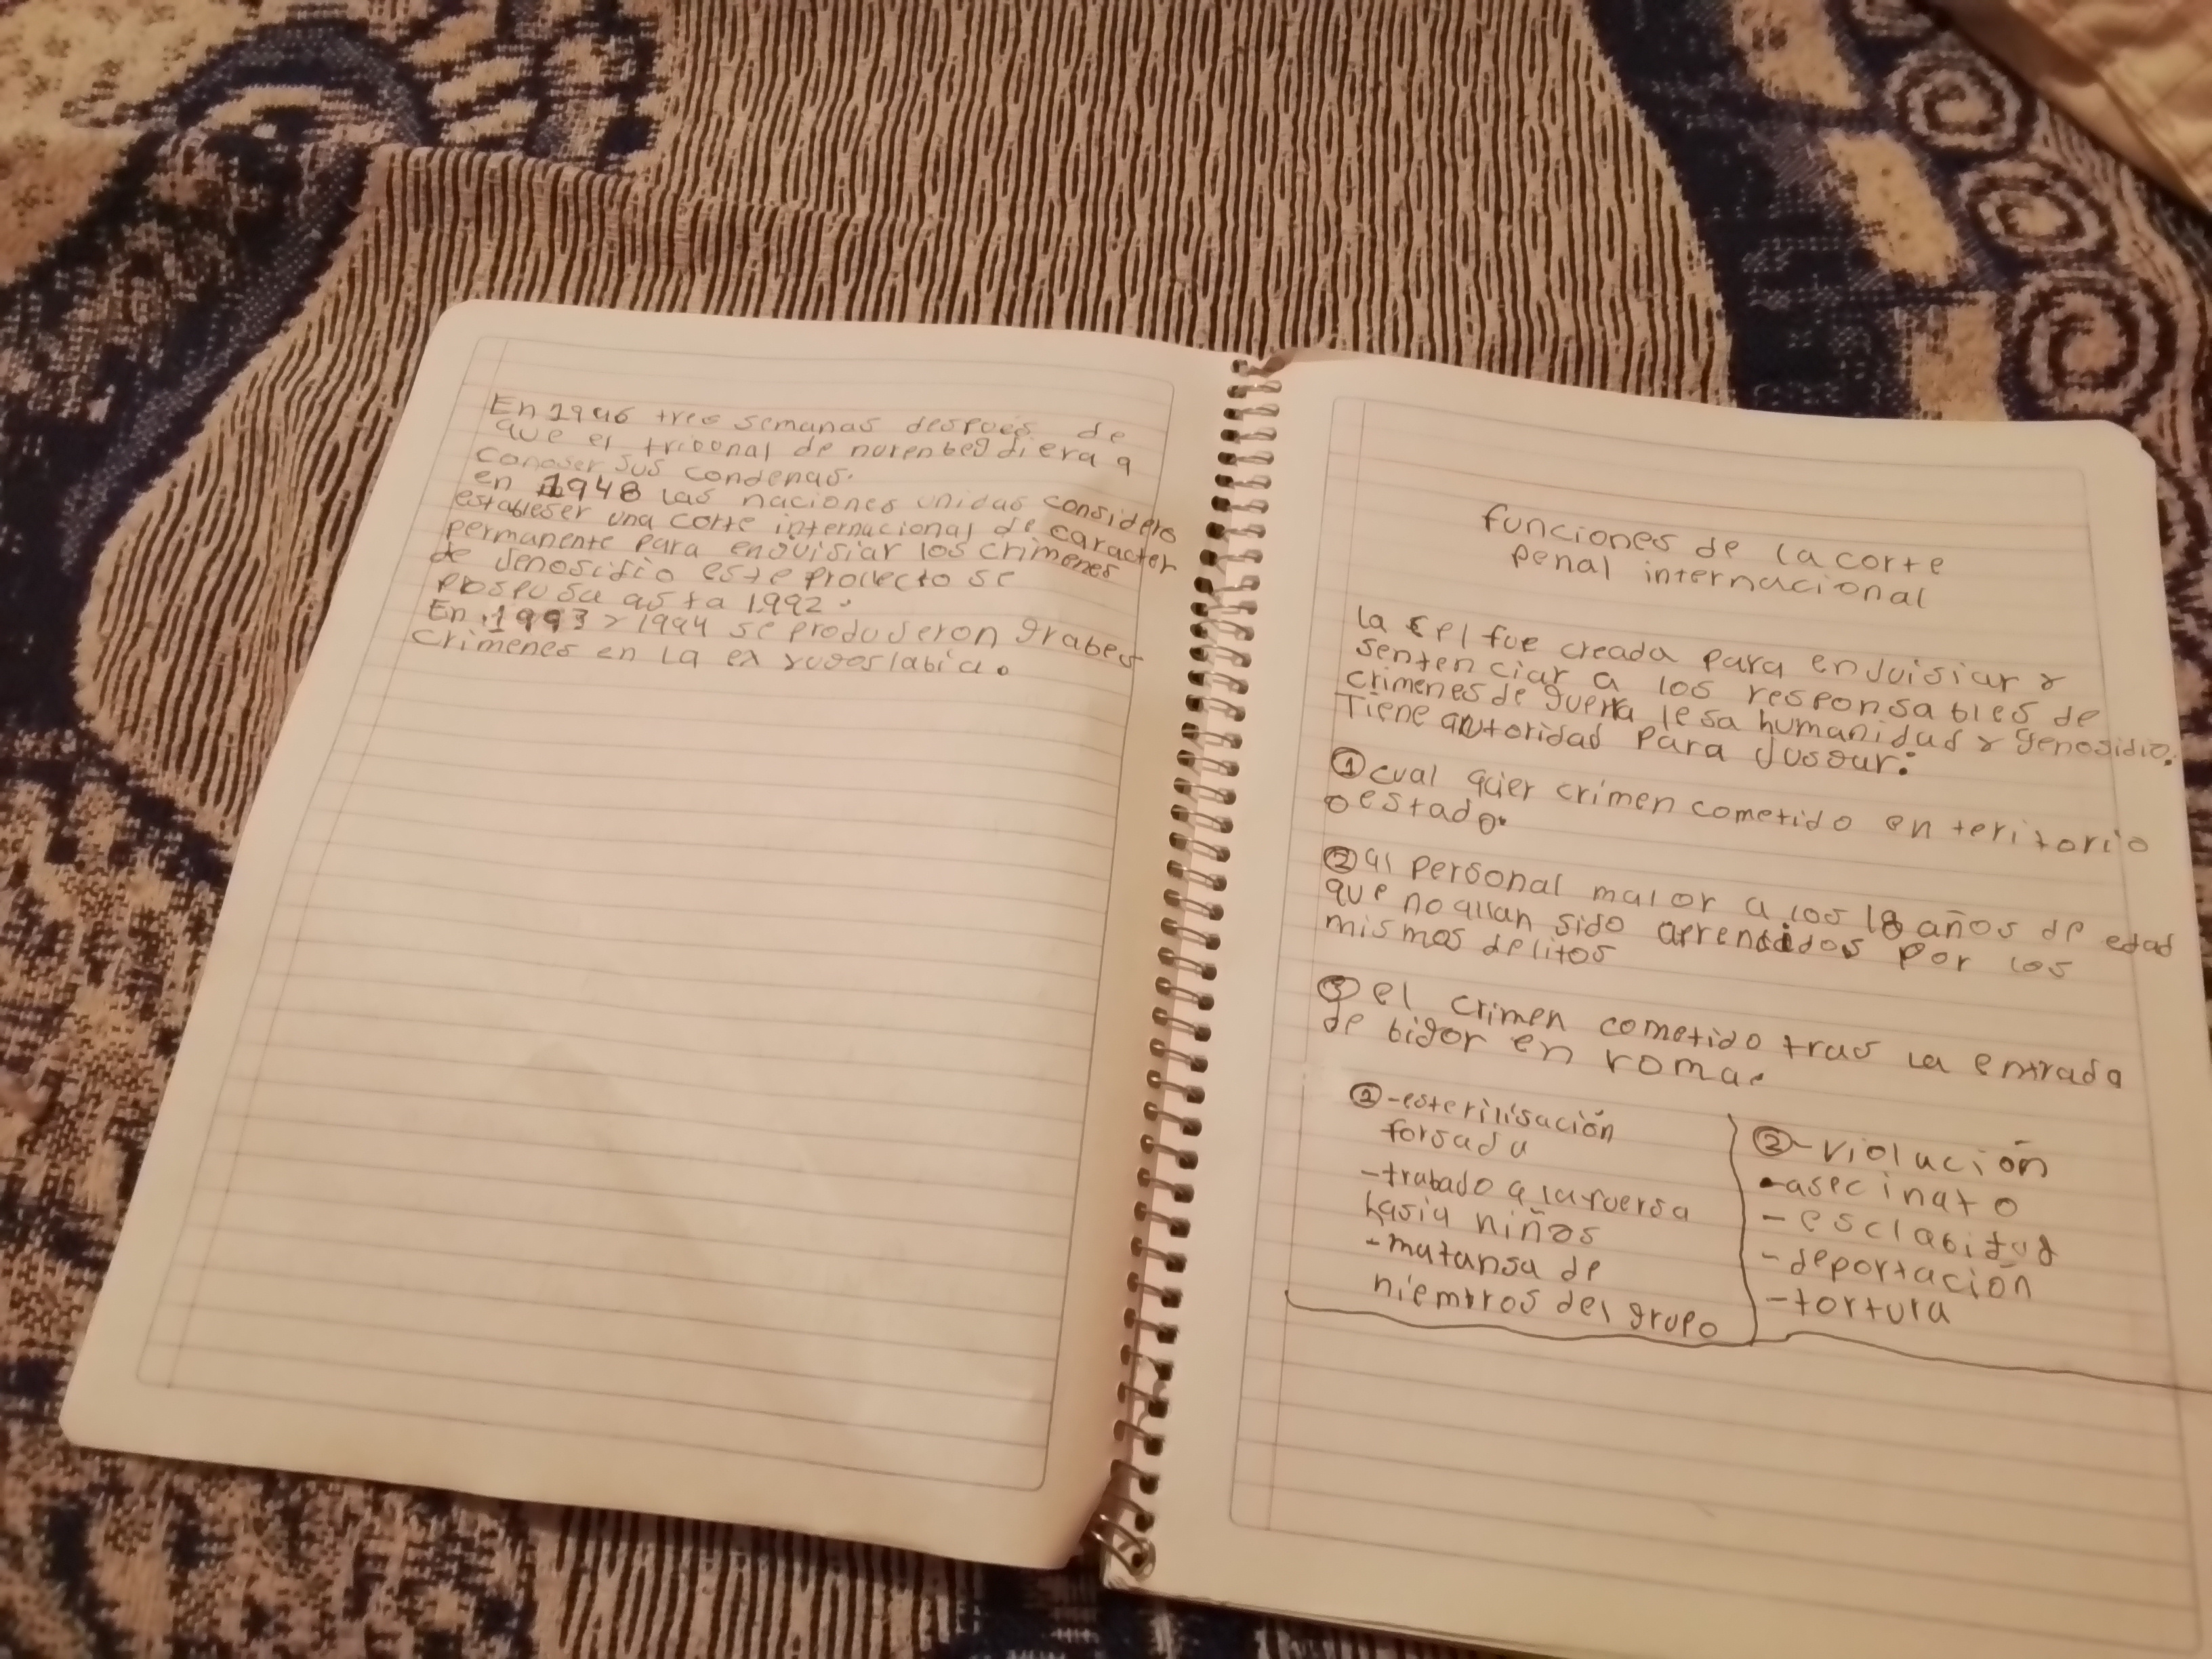 En 1946 tres semanas después de
que el tribonal de norenbeg diera a
conoser sus condenas.
en 1948 las naciones unidas considero
estableser una corte internacional de caracter
permanente para enjuisiar los crimenes
de jenosidio este prollecto se
pospusa asta 1992.
En 1993 y 1994 se produjeron grabes
crimenes en la ex yugoslabia.
funciones de la corte
penal internacional
la cpi fue creada para enjuisiar y
sentenciar a los responsables de
crimenes de guerra lesa humanidad y genosidio.
Tiene autoridad para jusgar:
① cual quier crimen cometido en teritorio
o estado.
② al personal malor a los 18 años de edad
que no allan sido aprendidos por los
mismos delitos
③ el crimen cometido tras la entrada
de bigor en roma.
① -esterilisación
forsada
-trabado a la fuersa
hasia niños
-matansa de
niembros del grupo
② -violación
-asecinato
-esclabitud
-deportación
-tortura